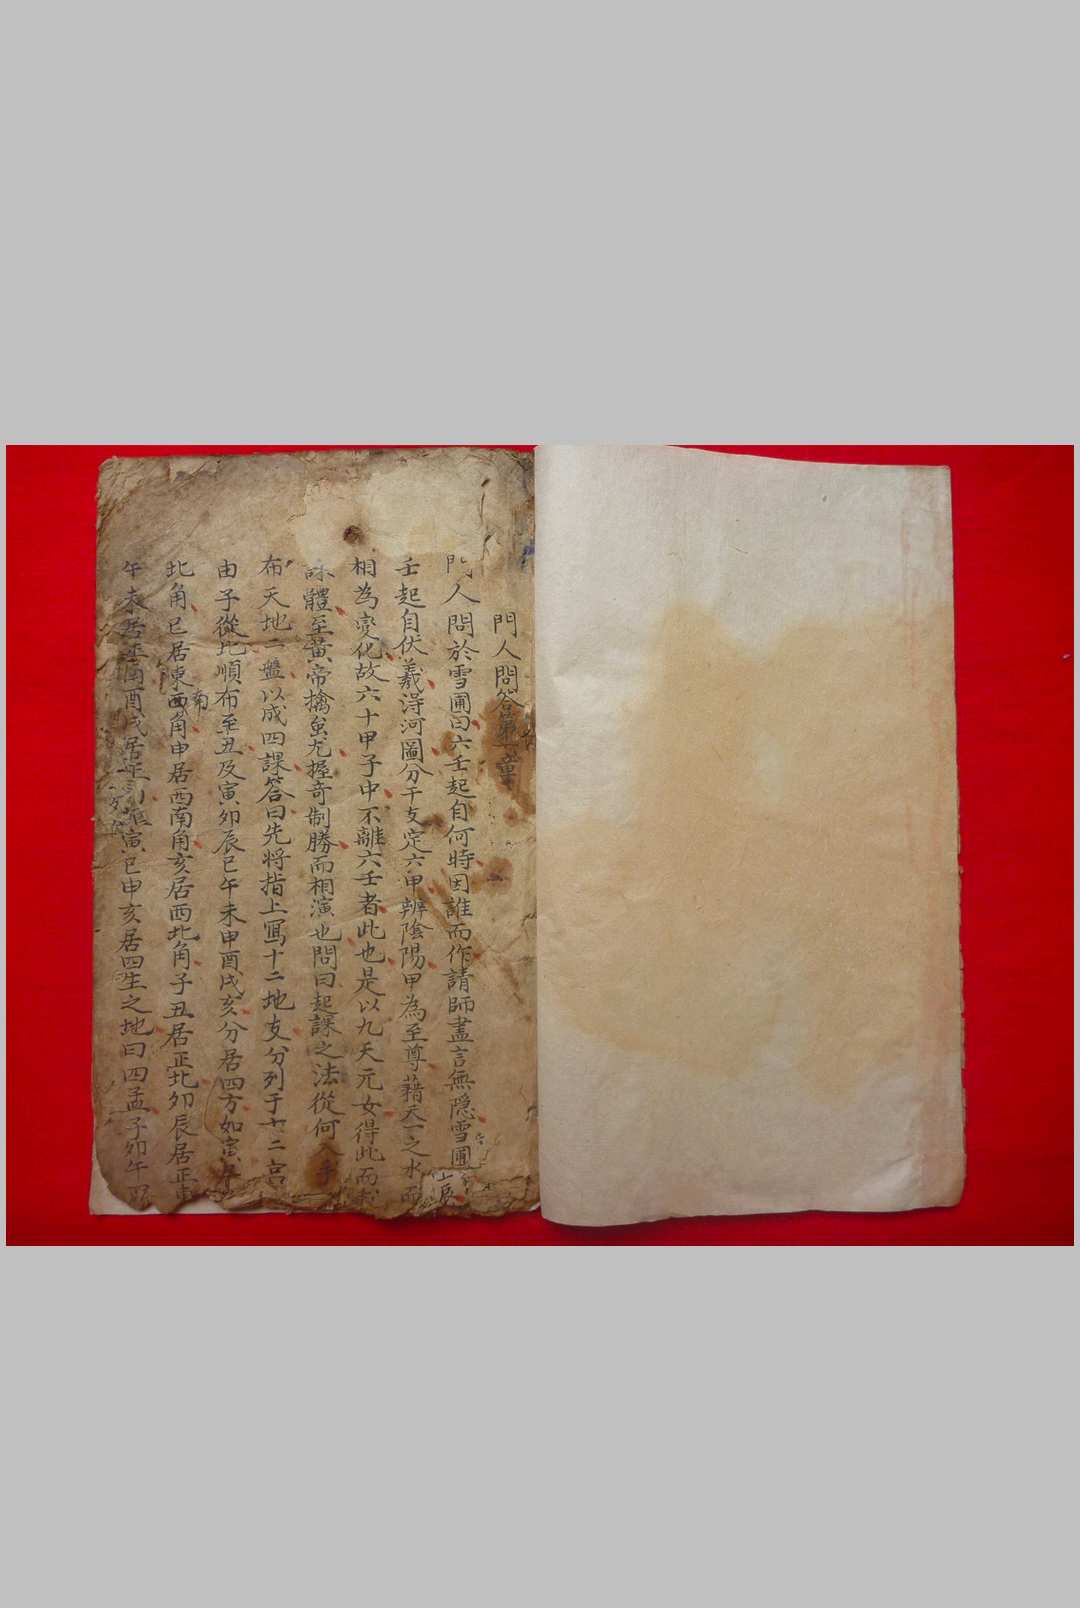 門人問答第一章
門人問於雪圃曰六壬起自何時因誰而作請師盡言無隱雪圃
壬起自伏羲得河圖分干支定六甲辨陰陽甲為至尊藉天一之水而
相為變化故六十甲子中不離六壬者此也是以九天元女得此而
體至黄帝擒蚩尤握奇制勝而相演也問曰起課之法從何入手
布天地二盤以成四課答曰先將指上寫十二地支分列于十二宫
由子從此順布至丑及寅卯辰巳午未申酉戌亥分居四方如寅居
北角巳居東南角申居西南角亥居西北角子丑居正北卯辰居正東
午未居正南酉戌居正西寅巳申亥居四生之地曰四孟子卯午